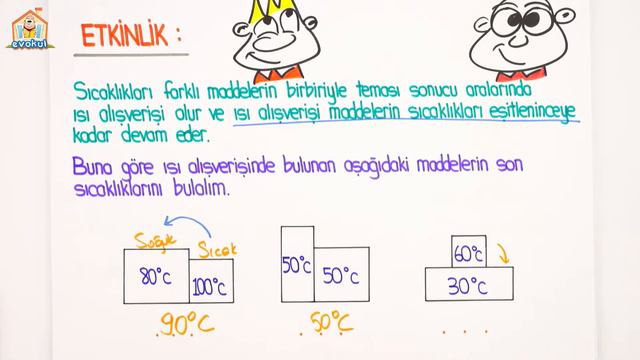 evokul
ETKİNLİK :
Sıcaklıkları farklı maddelerin birbiriyle teması sonucu aralarında
ısı alışverişi olur ve ısı alışverişi maddelerin sıcaklıkları eşitleninceye
kadar devam eder.
Buna göre ısı alışverişinde bulunan aşağıdaki maddelerin son
sıcaklıklarını bulalım.
Soğuk Sıcak
80°C 100°C
90°C
50°C 50°C
50°C
60°C
30°C
. . .